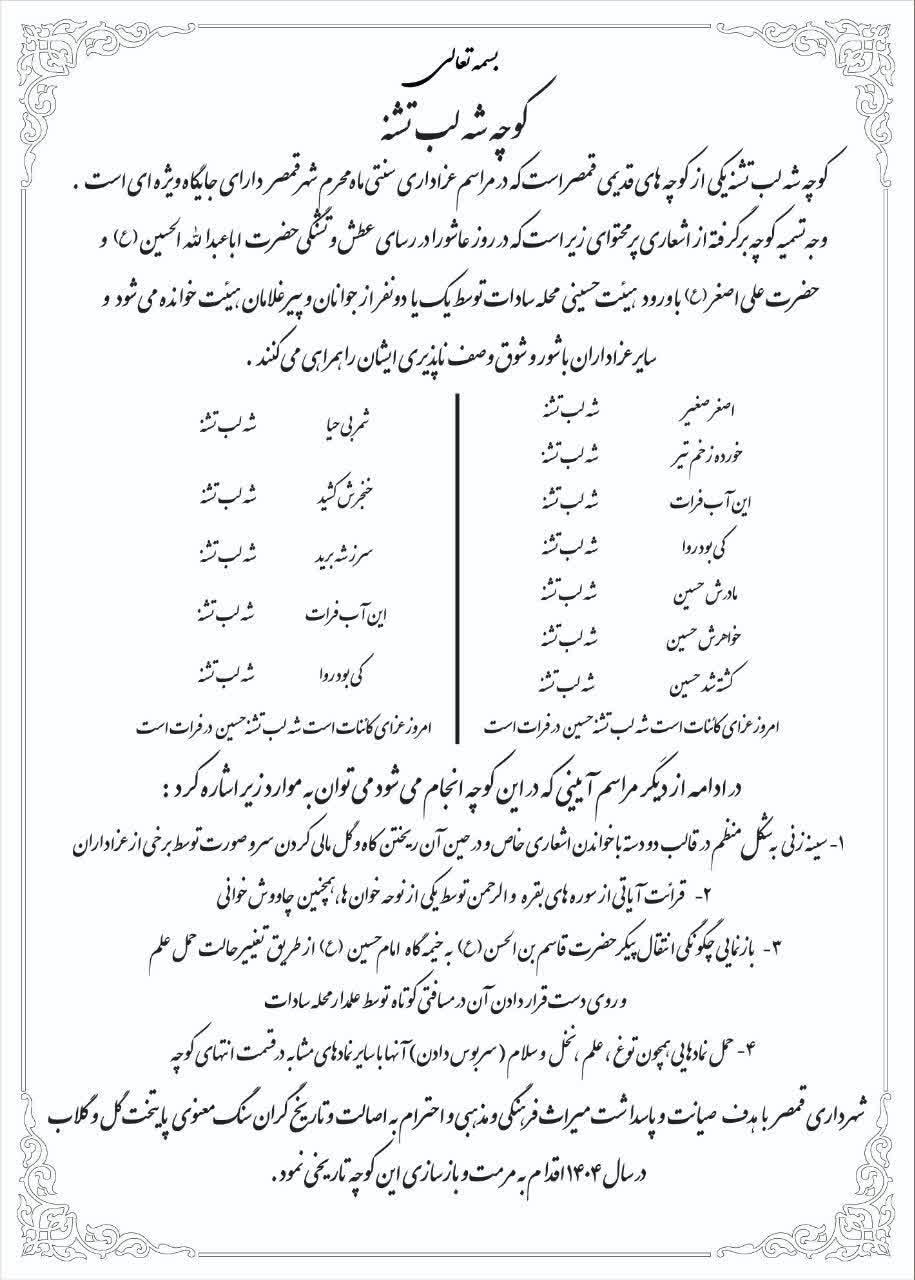 بسمه تعالی
کوچه شه لب تشنه
کوچه شه لب تشنه یکی از کوچه های قدیمی قمصر است که در مراسم عزاداری سنتی ماه محرم شهر قمصر دارای جایگاه ویژه ای است .
وجه تسمیه کوچه برگرفته از اشعاری پرمحتوای زیر است که در روز عاشورا در رسای عطش و تشنگی حضرت اباعبدا لله الحسین (ع) و
حضرت علی اصغر (ع) با ورود هیئت حسینی محله سادات توسط یک یا دو نفر از جوانان و پیرغلامان هیئت خوانده می شود و
سایر عزاداران با شور و شوق وصف ناپذیری ایشان را همراهی می کنند .
اصغر صغیر شه لب تشنه
خورده زخم تیر شه لب تشنه
این آب فرات شه لب تشنه
کی بود روا شه لب تشنه
مادرش حسین شه لب تشنه
خواهرش حسین شه لب تشنه
کشته شد حسین شه لب تشنه
امروز عزای کائنات است شه لب تشنه حسین در فرات است
شمر بی حیا شه لب تشنه
خنجرش کشید شه لب تشنه
سر ز شه برید شه لب تشنه
این آب فرات شه لب تشنه
کی بود روا شه لب تشنه
امروز عزای کائنات است شه لب تشنه حسین در فرات است
در ادامه از دیگر مراسم آیینی که در این کوچه انجام می شود می توان به موارد زیر اشاره کرد :
۱- سینه زنی به شکل منظم در قالب دو دسته با خواندن اشعاری خاص و در حین آن ریختن کاه و گل مالی کردن سر و صورت توسط برخی از عزاداران
۲- قرائت آیاتی از سوره های بقره و الرحمن توسط یکی از نوحه خوان ها، همچنین چاووش خوانی
۳- بازنمایی چگونگی انتقال پیکر حضرت قاسم بن الحسن (ع) به خیمه گاه امام حسین (ع) از طریق تغییر حالت حمل علم
و روی دست قرار دادن آن در مسافتی کوتاه توسط علمدار محله سادات
۴- حمل نمادهایی همچون توغ ، علم ، نخل و سلام ( سربوس دادن ) آنها با سایر نمادهای مشابه در قسمت انتهای کوچه
شهرداری قمصر با هدف صیانت و پاسداشت میراث فرهنگی و مذهبی و احترام به اصالت و تاریخ گران سنگ معنوی پایتخت گل و گلاب
در سال ۱۴۰۴ اقدام به مرمت و بازسازی این کوچه تاریخی نمود .